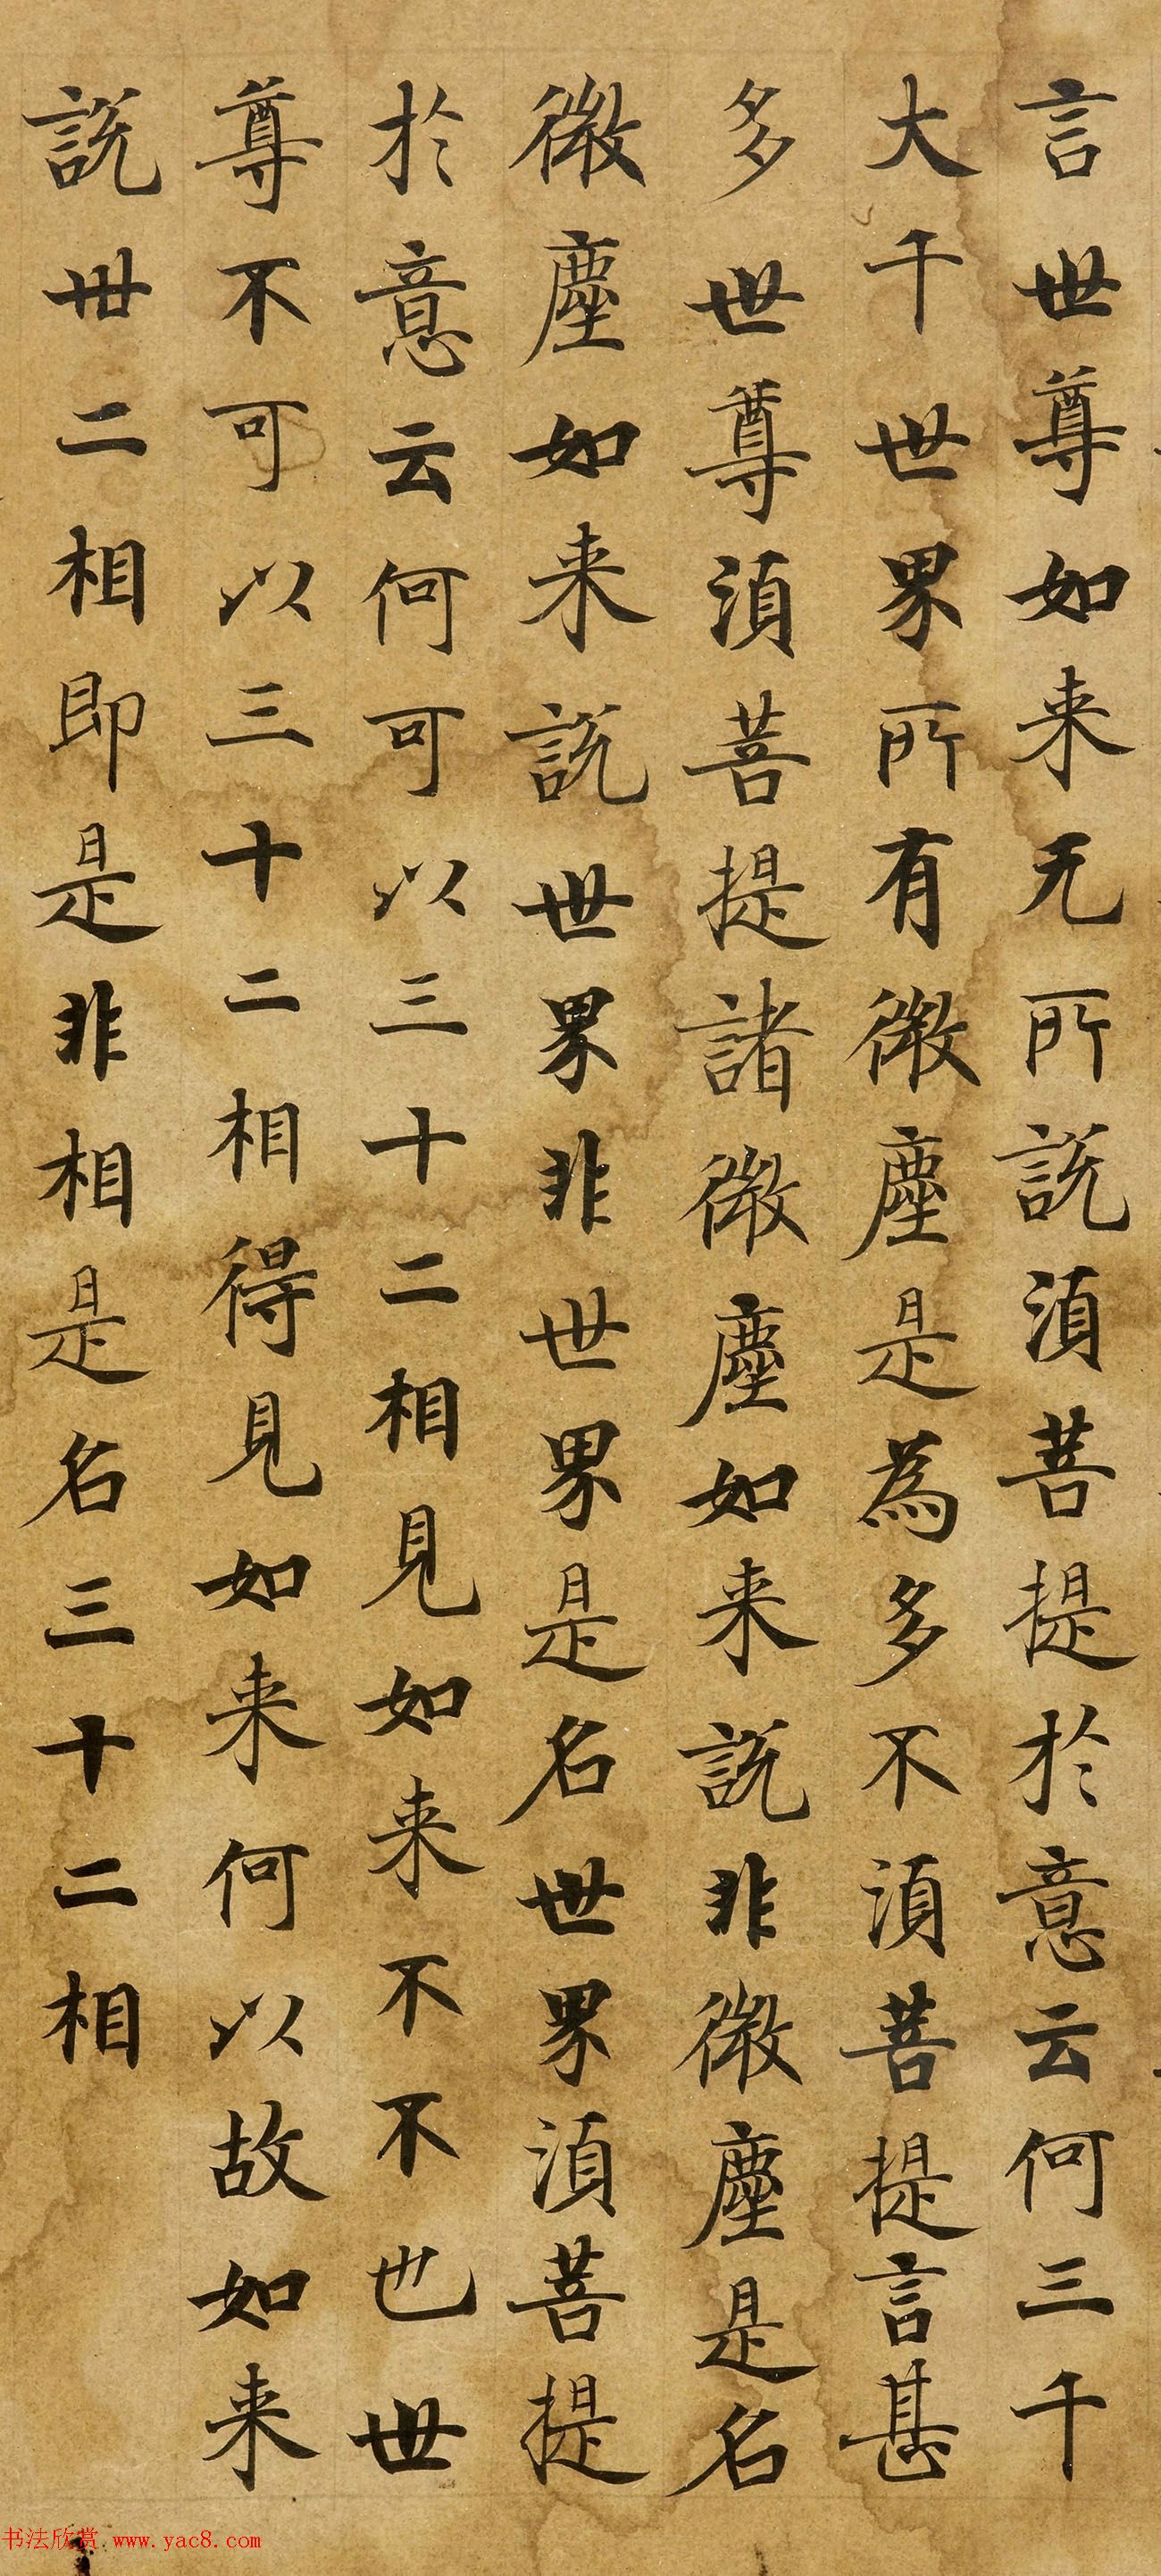 言世尊如来无所說須菩提於意云何三千
大千世界所有微塵是為多不須菩提言甚
多世尊須菩提諸微塵如来說非微塵是名
微塵如来說世界非世界是名世界須菩提
於意云何可以三十二相見如来不不也世
尊不可以三十二相得見如来何以故如来
說卅二相即是非相是名三十二相
书法欣赏 www.yac8.com